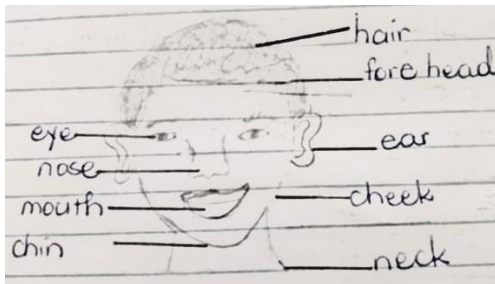 hair
fore head
eye
ear
nose
cheek
mouth
chin
neck